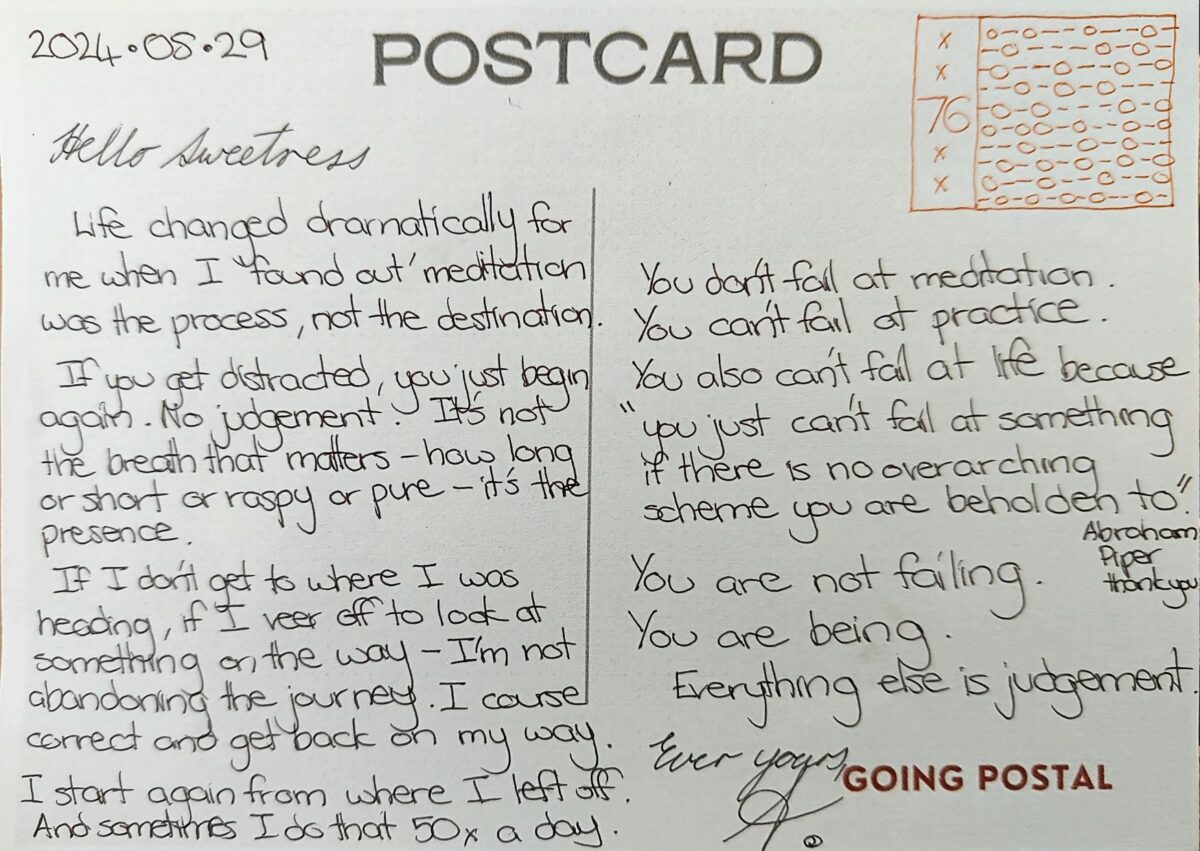 2024.05.29
POSTCARD
x
x
76
x
x
Hello Sweetness
Life changed dramatically for
me when I 'found out' meditation
was the process, not the destination.
If you get distracted, you just begin
again. No judgement. It's not
the breath that matters – how long
or short or raspy or pure – it's the
presence.
If I don't get to where I was
heading, if I veer off to look at
something on the way – I'm not
abandoning the journey. I course
correct and get back on my way.
I start again from where I left off.
And sometimes I do that 50x a day.
You don't fail at meditation.
You can't fail at practice.
You also can't fail at life because
"you just can't fail at something
if there is no overarching
scheme you are beholden to".
Abraham
Piper
thankyou
You are not failing.
You are being.
Everything else is judgement.
Ever yours,
GOING POSTAL